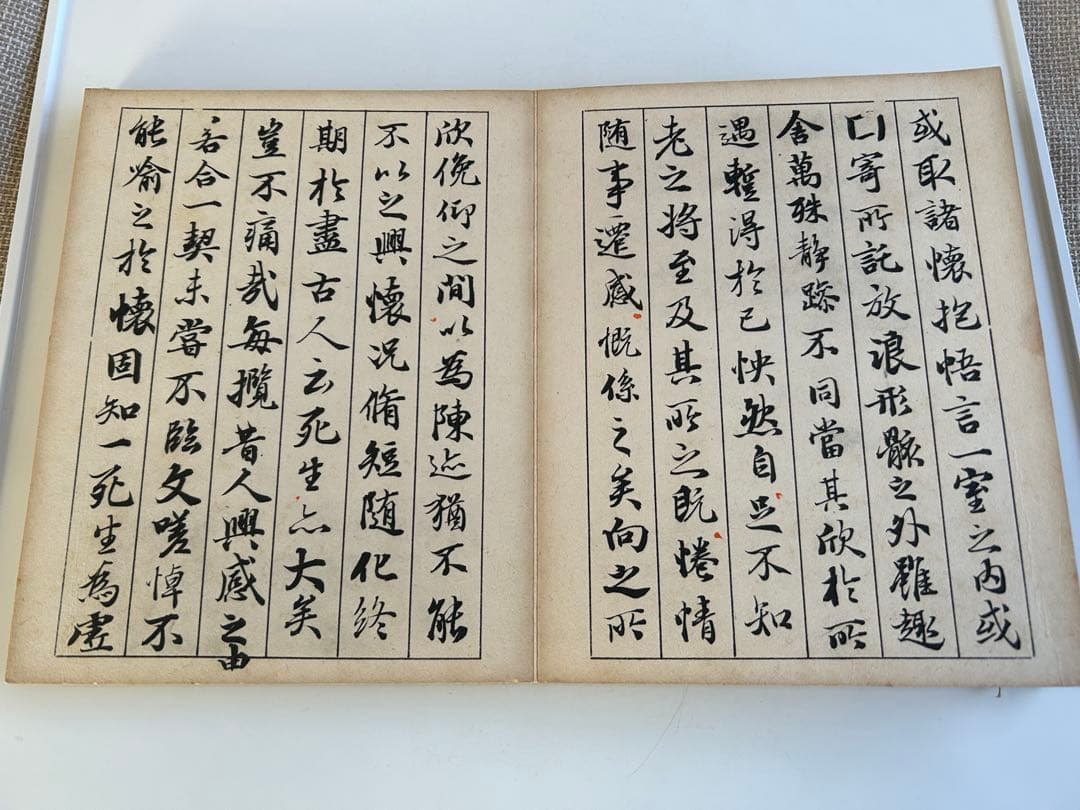 或取諸懷抱悟言一室之内或
寄所託放浪形骸之外雖趣
舍萬殊静躁不同當其欣於所
遇蹔得於己怏然自足不知
老之将至及其所之既惓情
随事遷感慨係之矣向之所
欣俛仰之間以為陳迹猶不能
不以之興懷况脩短随化終
期於盡古人云死生亦大矣
豈不痛哉每攬昔人興感之由
若合一契未嘗不臨文嗟悼不
能喻之於懷固知一死生為虚